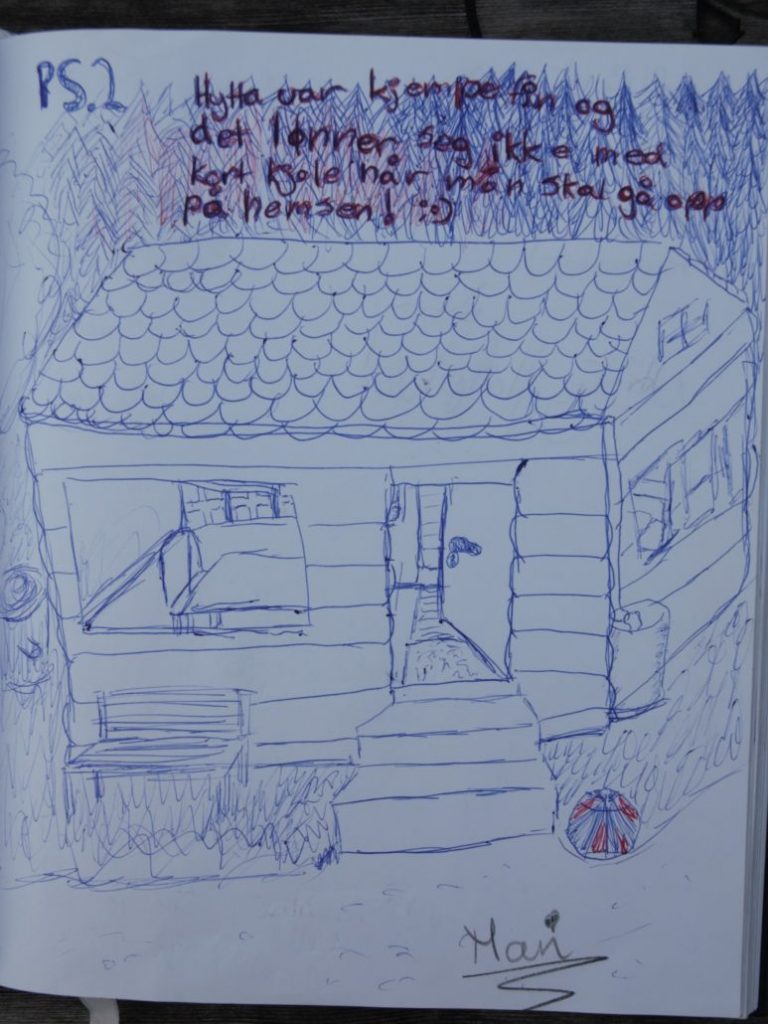 PS.2
Hytta var kjempe fin og
det lønner seg ikke med
kort kjole når man skal gå opp
på hemsen! ;:)
Mari